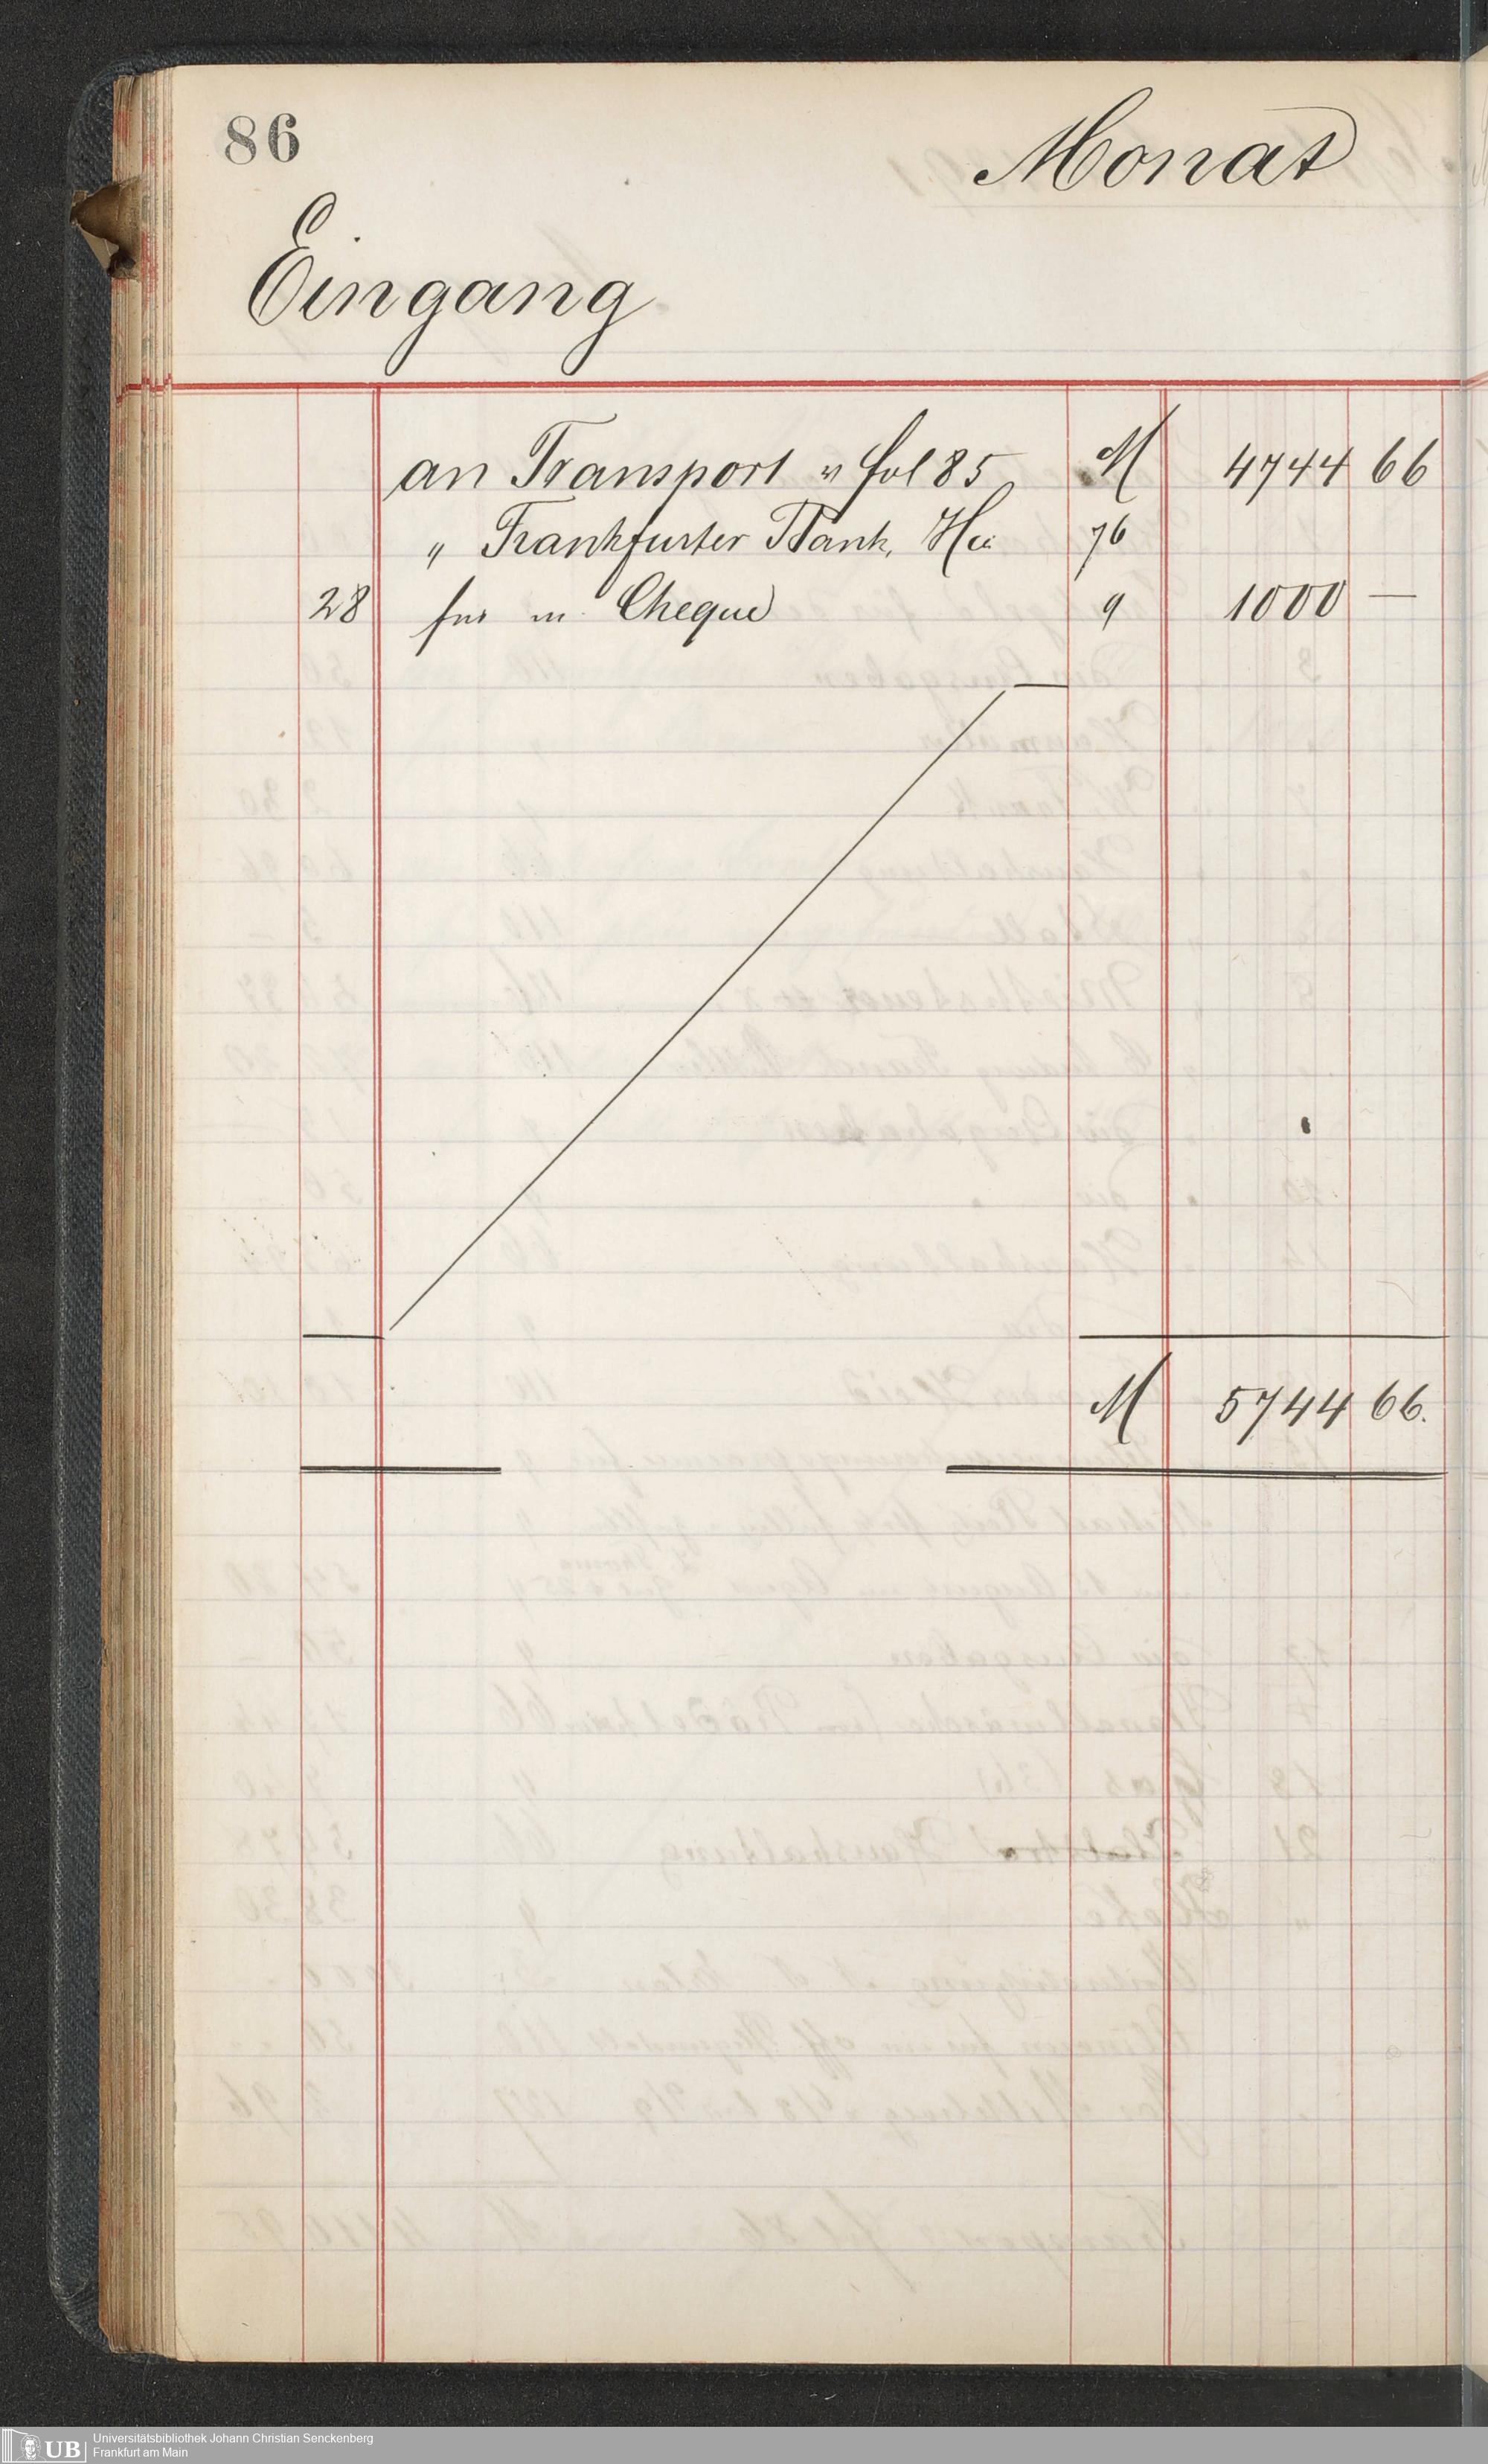 86
Monat
Eingang
an Transport v fol 85 M 4744 66
" Frankfurter Bank, Hei 76
28 für m. Cheque 9 1000 —
M 5744 66.
UB Universitätsbibliothek Johann Christian Senckenberg
Frankfurt am Main